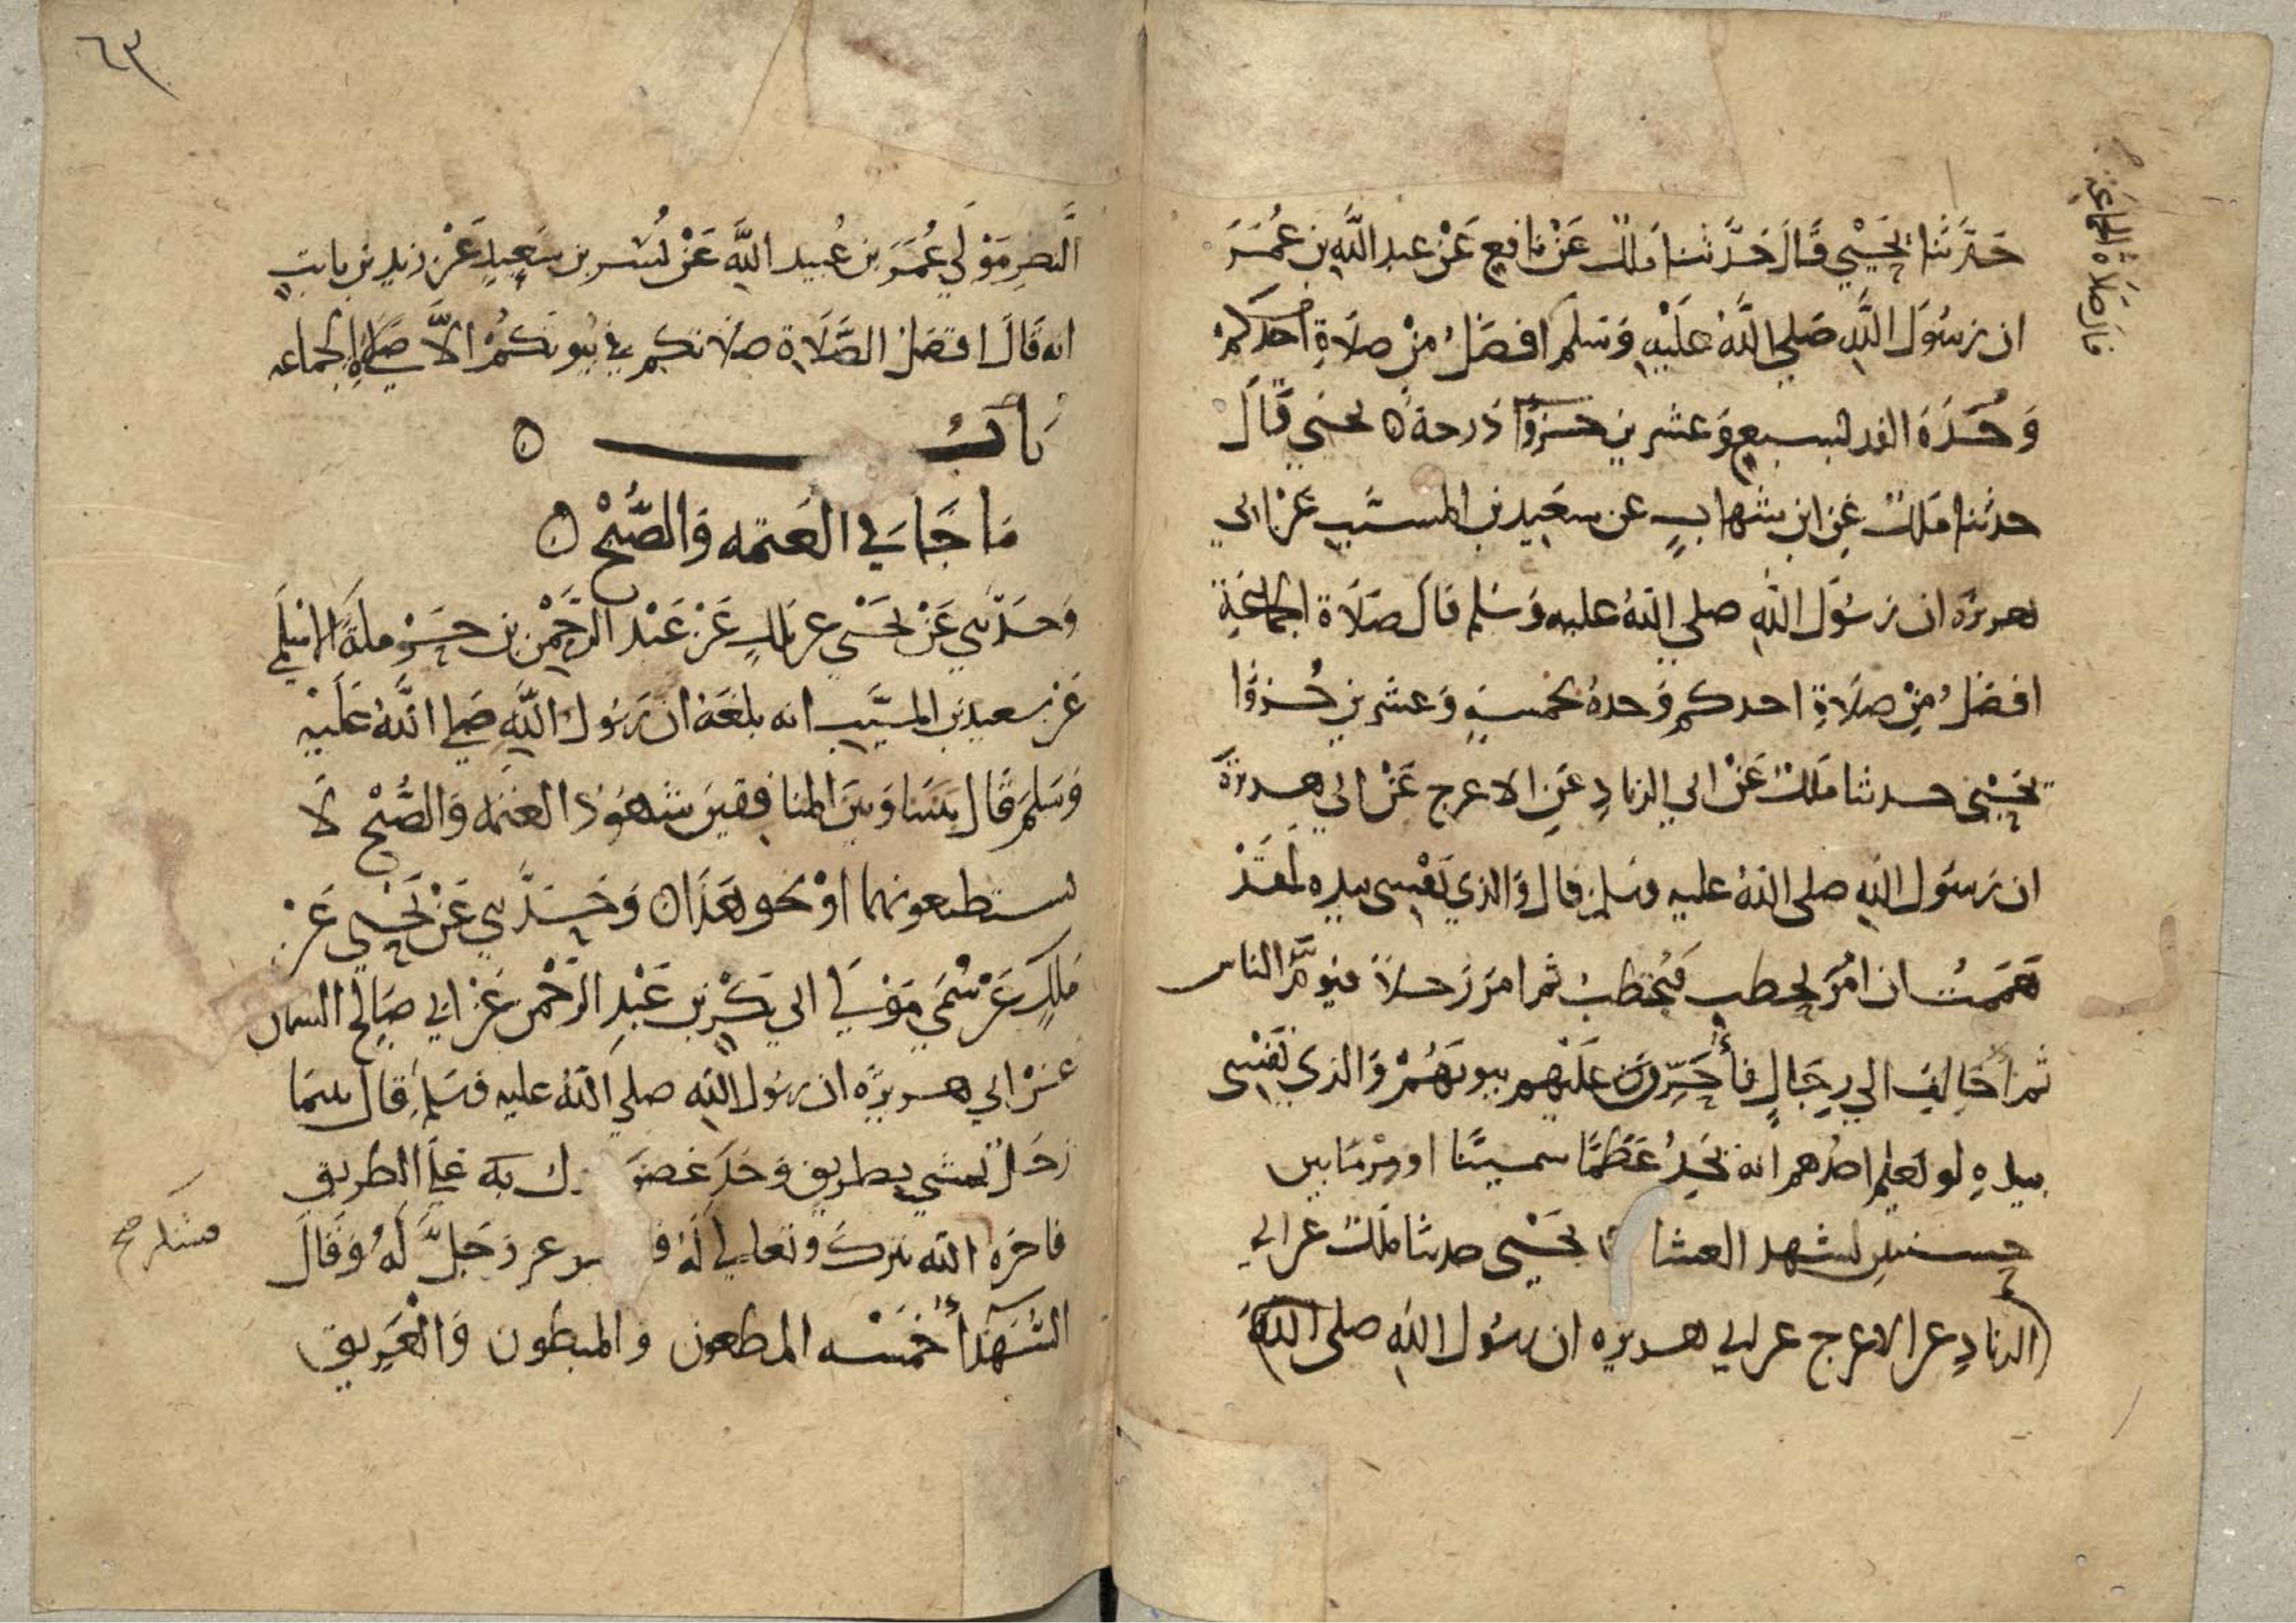 قال صلاة الجماعة
حدثنا يحيي قال حدثنا ملك عن نافع عن عبد الله بن عمر
ان رسول الله صلي الله عليه وسلم افضل من صلاة احدكم
وحده الفد بسبع وعشرين جزوا درجة ۵ يحيي قال
حدثنا ملك عن ابن شهاب عن سعيد بن المسيب عن ابي
هريره ان رسول الله صلي الله عليه وسلم قال صلاة الجماعة
افضل من صلاة احدكم وحده بخمسة وعشرين جزوا
يحيي حدثنا ملك عن ابي الزناد عن الاعرج عن ابي هريرة
ان رسول الله صلي الله عليه وسلم قال والذي نفسي بيده لقد
هممت ان امر بحطب فيحطب ثم امر رجلا فيوم الناس
ثم اخالف الي رجال فأحرق عليهم بيوتهم والذي نفسي
بيده لو يعلم احدهم انه يجد عظما سمينا او مرماتين
حسنتين لشهد العشا يحيي حدثنا ملك عن ابي
الزناد عن الاعرج عن ابي هريره ان رسول الله صلي الله
٦٣
النضر مولي عمر بن عبيد الله عن بسر بن سعيد عن زيد بن ثابت
انه قال افضل الصلاة صلاتكم في بيوتكم الا صلاة الجماعه
باب ۵
ما جا في العتمه والصبح ۵
وحدثني عن يحيي عن ملك عن عبد الرحمن بن حرملة الاسلمي
عن سعيد بن المسيب انه بلغه ان رسول الله صلي الله عليه
وسلم قال بيننا وبين المنافقين شهود العتمه والصبح لا
يستطيعونهما او نحو هذا ۵ وحدثني عن يحيي عن
ملك عن سمي مولي ابي بكر بن عبد الرحمن عن ابي صالح السمان
عن ابي هريره ان رسول الله صلي الله عليه وسلم قال بينما
رجل يمشي بطريق وجد غصن ك به علي الطريق
فاخره الله تبرك وتعالي له ف عز وجل له وقال
فشكر صح
الشهدا خمسه المطعون والمبطون والغريق